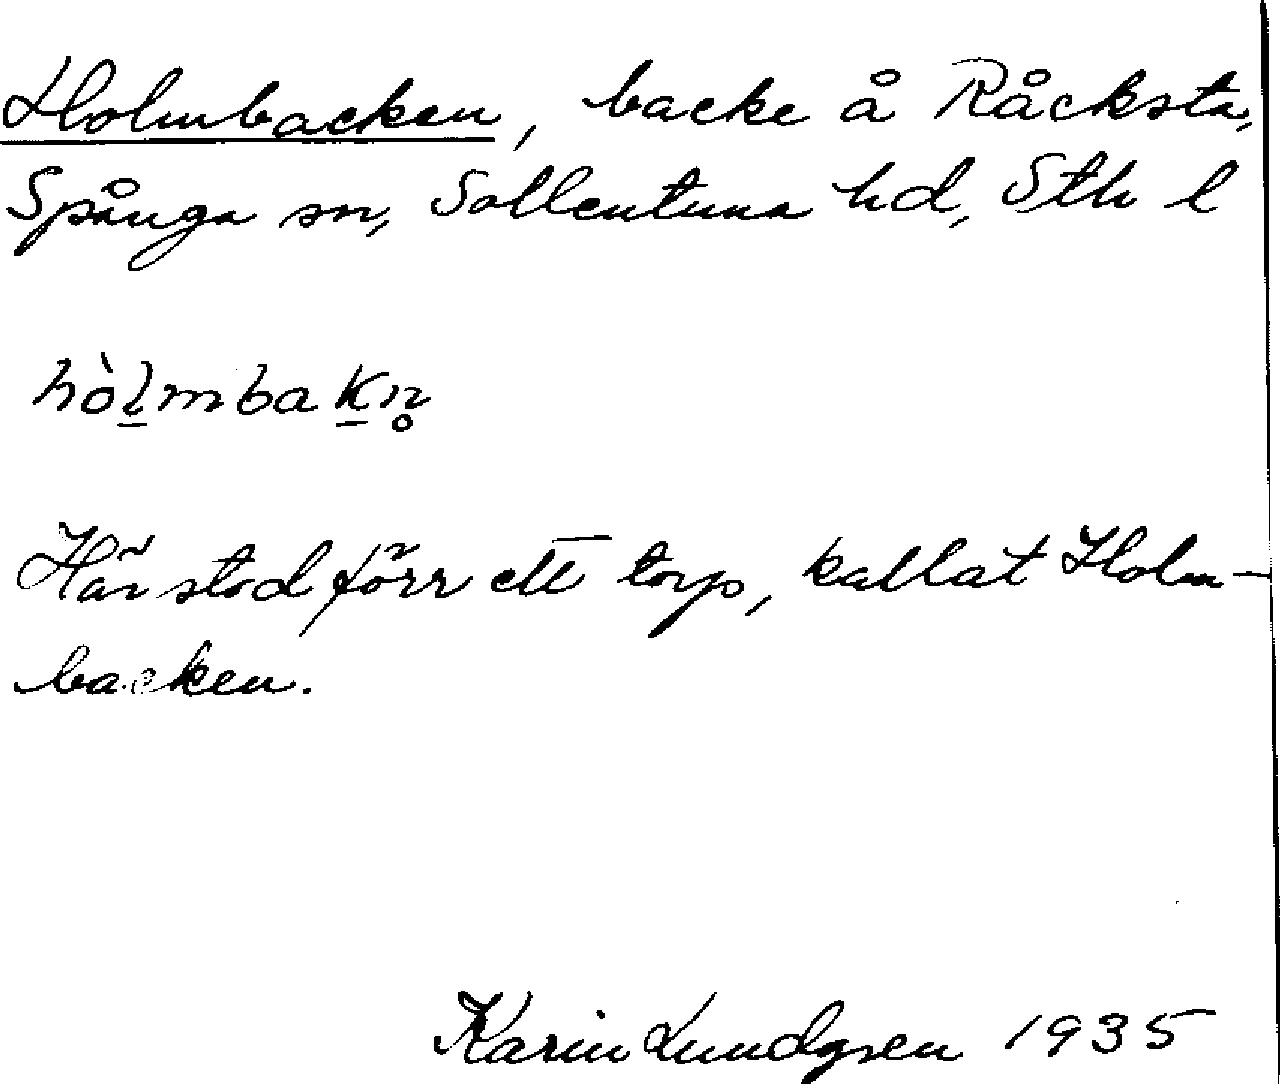 Holmbacken, backe å Råcksta,
Spånga sn, Sollentuna hd, Sth l
hòl̲mbak̲n̥
Här stod förr ett torp, kallat Holm-
backen.
Karin Lundgren 1935